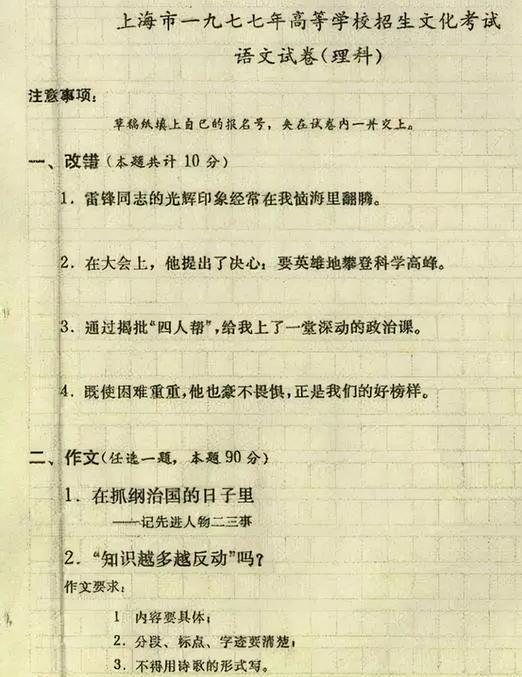 上海市一九七七年高等学校招生文化考试
语文试卷(理科)
注意事项:
草稿纸填上自己的报名号,夹在试卷内一并交上。
一、改错(本题共计 10 分)
1. 雷锋同志的光辉印象经常在我恼海里翻腾。
2. 在大会上,他提出了决心:要英雄地攀登科学高峰。
3. 通过揭批“四人帮”,给我上了一堂深动的政治课。
4. 既使困难重重,他也豪不畏惧,正是我们的好榜样。
二、作文(任选一题,本题 90 分)
1. 在抓纲治国的日子里
——记先进人物二三事
2. “知识越多越反动”吗?
作文要求:
1 内容要具体;
2. 分段、标点、字迹要清楚;
3. 不得用诗歌的形式写。